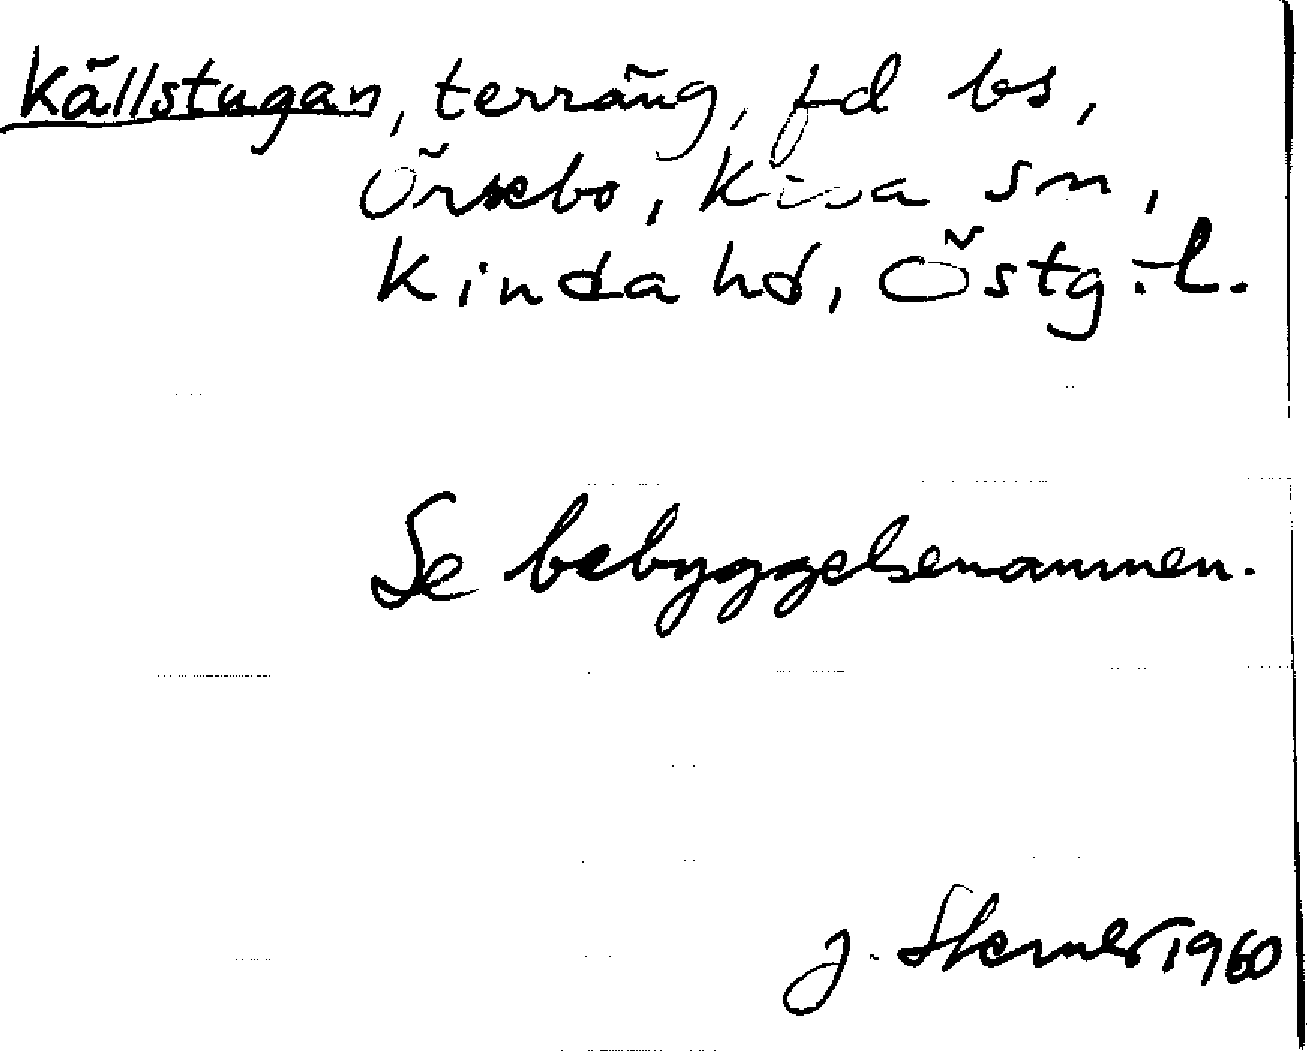 Källstugan, terräng, fd bs,
Örsebo, Kisa sn,
Kinda hd, Östg.l.
Se bebyggelsenamnen.
J. 1960